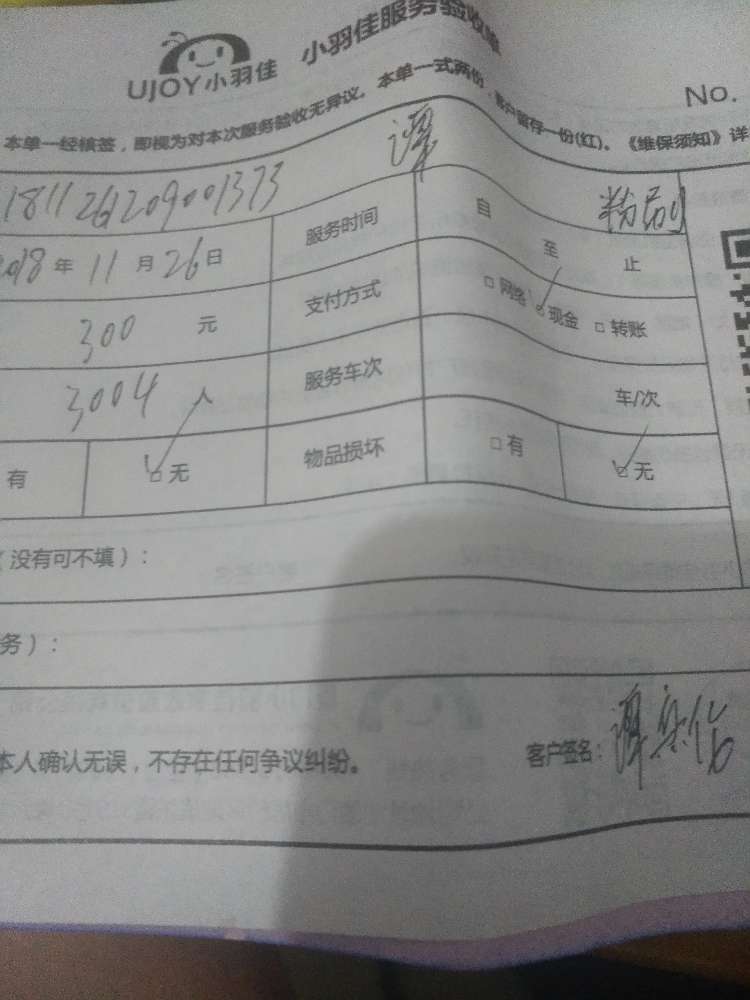 UJOY小羽佳 小羽佳服务验收单
No.
本单一经核签，即视为对本次服务验收无异议。本单一式两份，客户留存一份(红)。《维保须知》详
谭
1811261209001373 服务时间 自 至 止
粉刷
2018年11月26日
300 元 支付方式 □网络 □现金 □转账
3004 人 服务车次 车/次
有 □无 物品损坏 □有 □无
（没有可不填）：
务）：
本人确认无误，不存在任何争议纠纷。 客户签名：谭